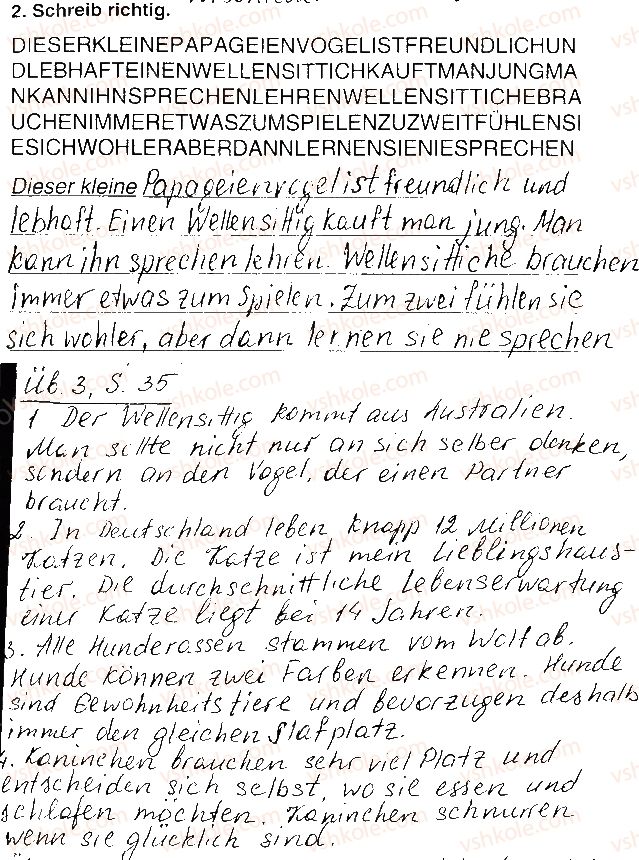 2. Schreib richtig.
DIESERKLEINEPAPAGEIENVOGELISTFREUNDLICHUN
DLEBHAFTEINENWELLENSITTICHKAUFTMANJUNGMA
NKANNIHNSPRECHENLEHRENWELLENSITTICHEBRA
UCHENIMMERETWASZUMSPIELENZUZWEITFÜHLENSI
ESICHWOHLERABERDANNLERNENSIENIESPRECHEN
Dieser kleine Papageienvogel ist freundlich und
lebhaft. Einen Wellensittig kauft man jung. Man
kann ihn sprechen lehren. Wellensittiche brauchen
immer etwas zum Spielen. Zum zwei fühlen sie
sich wohler, aber dann lernen sie nie sprechen
Üb. 3, S. 35
1 Der Wellensittig kommt aus Australien.
Man sollte nicht nur an sich selber denken,
sondern an den Vogel, der einen Partner
braucht.
2. In Deutschland leben knapp 12 Millionen
Katzen. Die Katze ist mein Lieblingshaus-
tier. Die durchschnittliche Lebenserwartung
einer Katze liegt bei 14 Jahren.
3. Alle Hunderassen stammen vom Wolf ab.
Hunde können zwei Farben erkennen. Hunde
sind Gewohnheitstiere und bevorzugen deshalb
immer den gleichen Slafplatz.
4. Kaninchen brauchen sehr viel Platz und
entscheiden sich selbst, wo sie essen und
schlafen möchten. Kaninchen schnurren
wenn sie glücklich sind.
vshkole.com